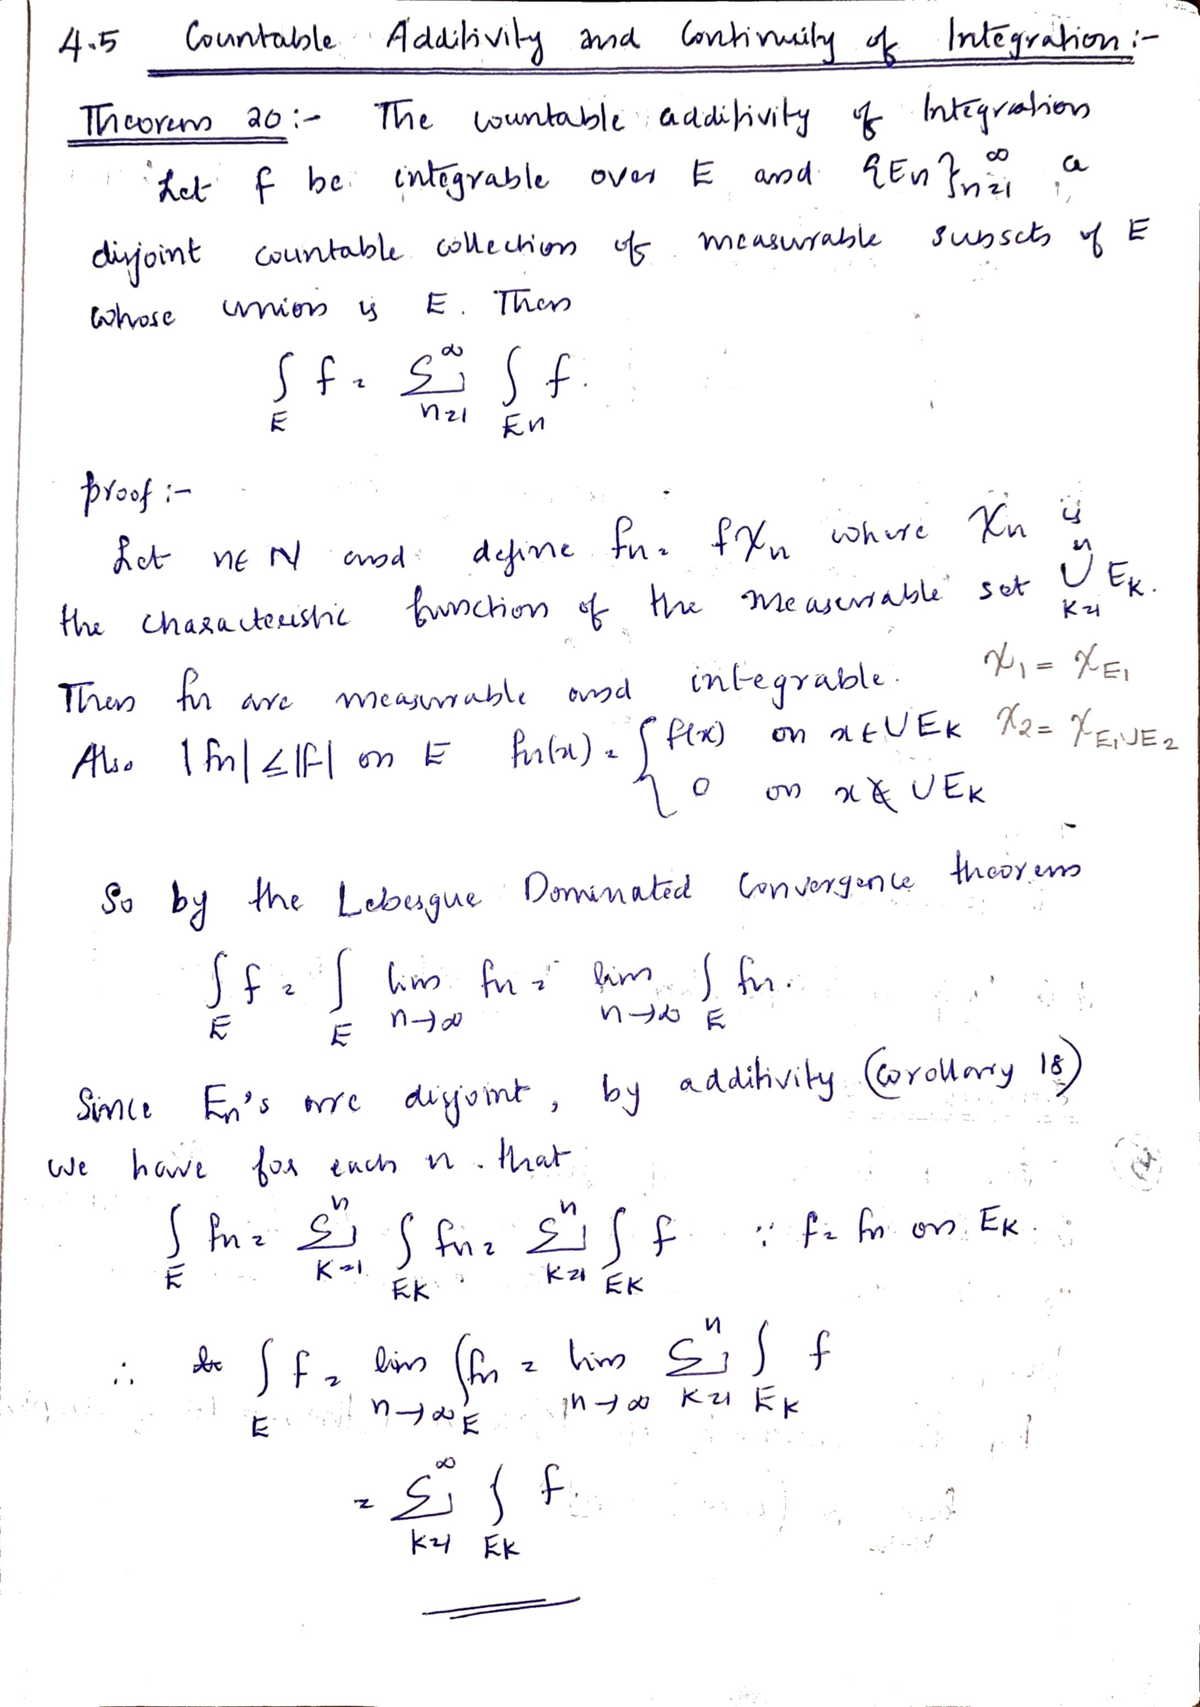 4.5 Countable Additivity and Continuity of Integration :-
Theorem 20 :- The countable additivity of Integration
Let f be integrable over E and {En}∞n=1 a
disjoint countable collection of measurable subsets of E
whose union is E. Then
∫E f = ∑∞n=1 ∫En f.
proof :-
Let n∈N and define fn = fχn where χn is
the characteristic function of the measurable set ∪nk=1 Ek.
Then fn are measurable and integrable. χ1 = χE1
Also |fn| ≤ |f| on E fn(x) = { f(x) on x∈∪Ek χ2 = χE1∪E2
0 on x∉∪Ek
So by the Lebesgue Dominated Convergence theorem
∫E f = ∫E lim n→∞ fn = lim n→∞ ∫E fn.
Since En's are disjoint, by additivity (Corollary 18)
we have for each n. that
∫E fn = ∑nk=1 ∫Ek fn = ∑nk=1 ∫Ek f ∵ f = fn on Ek.
∴ ∫E f = lim n→∞ ∫E fn = lim n→∞ ∑nk=1 ∫Ek f
= ∑∞k=1 ∫Ek f.